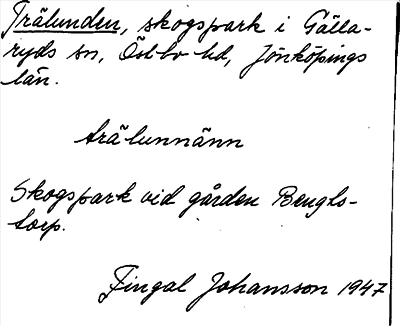 Trälunden, skogspark i Gälla-
ryds sn, Östbo hd, Jönköpings
län.
trälunnänn
Skogspark vid gården Bengts-
torp.
Fingal Johansson 1947